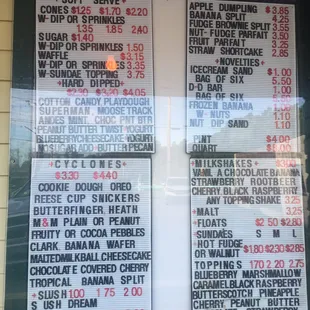 SOFT SERVE
CONES $1.25 $1.70 $2.20
W-DIP OR SPRINKLES
1.35 1.85 2.40
SUGAR $1.40
W-DIP OR SPRINKLES 1.50
WAFFLE $3.15
W-DIP OR SPRINKLES 3.35
W-SUNDAE TOPPING 3.75
+HARD DIPPED+
$2.30 $3.30 $4.05
COTTON CANDY PLAYDOUGH
SUPERMAN, MOOSE TRACK
ANDES MINT, CHOC. PNT BTR
PEANUT BUTTER TWIST YOGURT
BLUEBERRY CHEESECAKE YOGURT
NO SUGAR ADD BUTTER PECAN
+CYCLONES+
$3.30 $4.40
COOKIE DOUGH OREO
REESE CUP SNICKERS
BUTTERFINGER, HEATH
M&M PLAIN OR PEANUT
FRUITY OR COCOA PEBBLES
CLARK, BANANA WAFER
MALTEDMILKBALL, CHEESECAKE
CHOCOLATE COVERED CHERRY
TROPICAL BANANA SPLIT
+SLUSH 1.00 1.75 2.00
S USH DREAM
APPLE DUMPLING $3.85
BANANA SPLIT 4.25
FUDGE BROWNIE SPLIT 3.55
NUT-FUDGE PARFAIT 3.50
FRUIT PARFAIT 3.25
STRAW SHORTCAKE 2.85
+NOVELTIES+
ICECREAM SAND $1.00
BAG OF SIX 5.50
D-D BAR 1.00
BAG OF SIX 5.50
FROZEN BANANA
W-NUTS 1.10
NUT DIP SAND 1.10
PINT $4.00
QUART
+MILKSHAKES+ $3.00
VANILLA CHOCOLATE BANANA
STRAWBERRY ROOTBEER
CHERRY, BLACK RASPBERRY
ANY TOPPING SHAKE 3.25
+MALT 3.25
+FLOATS $2.50 $2.80
+SUNDAES S M L
HOT FUDGE $1.80 $2.30 $2.85
OR WALNUT
TOPPINGS 1.70 2.20 2.75
BLUEBERRY MARSHMALLOW
CARAMEL, BLACK RASPBERRY
BUTTERSCOTCH PINEAPPLE
CHERRY, PEANUT BUTTER
STRAWBERRY